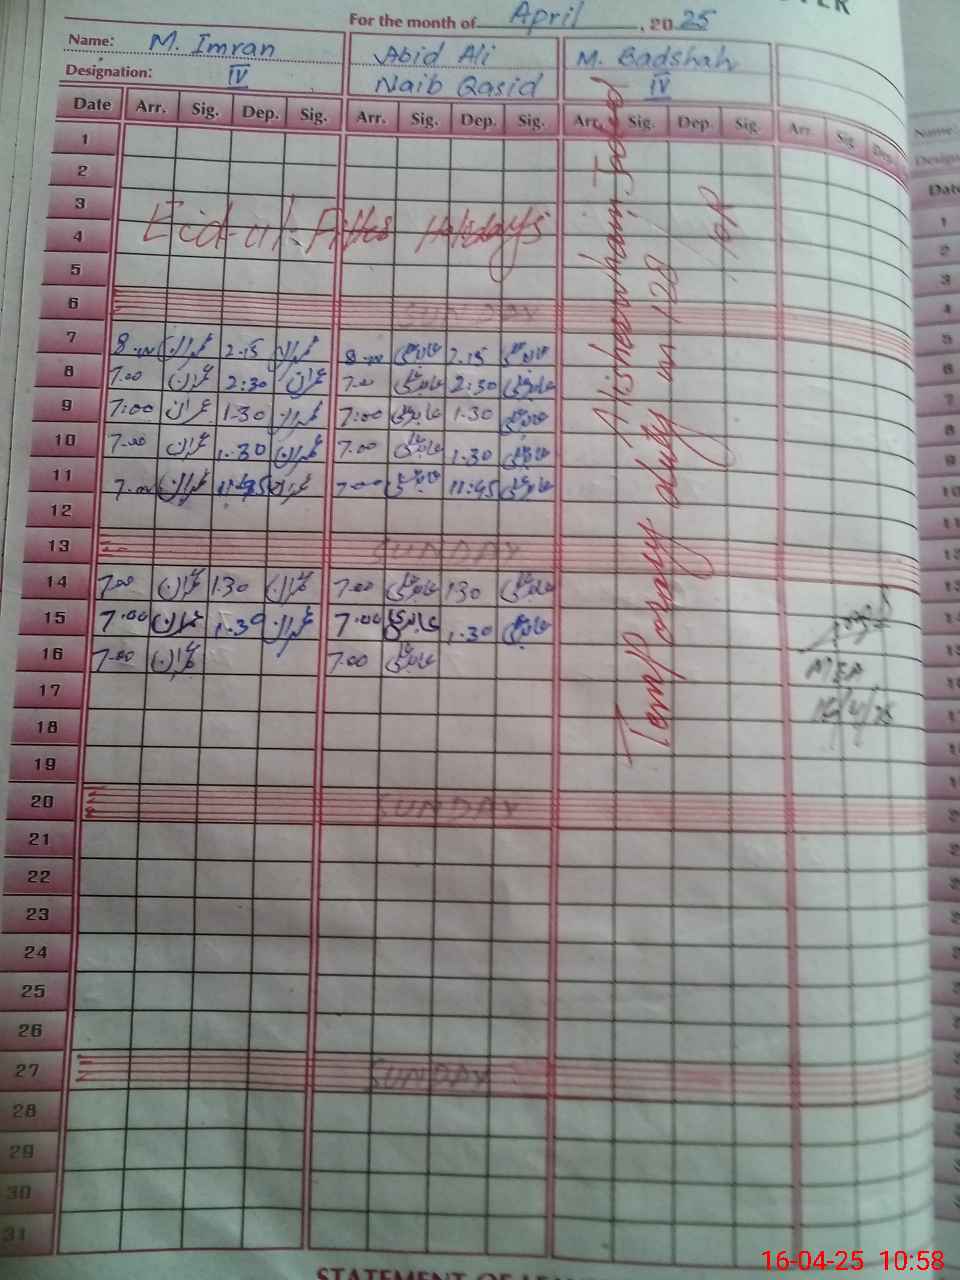 For the month of April , 20 25
Name: M. Imran Abid Ali M. Badshah
Designation: IV Naib Qasid IV
Date Arr. Sig. Dep. Sig. Arr. Sig. Dep. Sig. Arr. Sig. Dep. Sig. Arr. Sig Dep.
1
2
3
Eid-ul-Fitter Holidays
4
5
6 SUNDAY
7 8.00 عمران 2.15 عمران 8.00 عابد علی 2.15 عابد علی
8 7.00 عمران 2:30 عمران 7.00 عابد علی 2:30 عابد علی
9 7:00 عمران 1.30 عمران 7:00 عابد علی 1.30 عابد علی
10 7.00 عمران 1.30 عمران 7.00 عابد علی 1.30 عابد علی
11 7.00 عمران 11:45 عمران 7.00 عابد علی 11:45 عابد علی
12
13 SUNDAY
14 7.00 عمران 1.30 عمران 7.00 عابد علی 1.30 عابد علی
15 7.00 عمران 1.30 عمران 7.00 عابد علی 1.30 عابد علی
16 7.00 عمران 7.00 عابد علی
17
18
19
20 SUNDAY
21
22
23
24
25
26
27 SUNDAY
28
29
30
31
Temporary duty in 128/
Name:
Date
STATEMENT OF
16-04-25 10:58